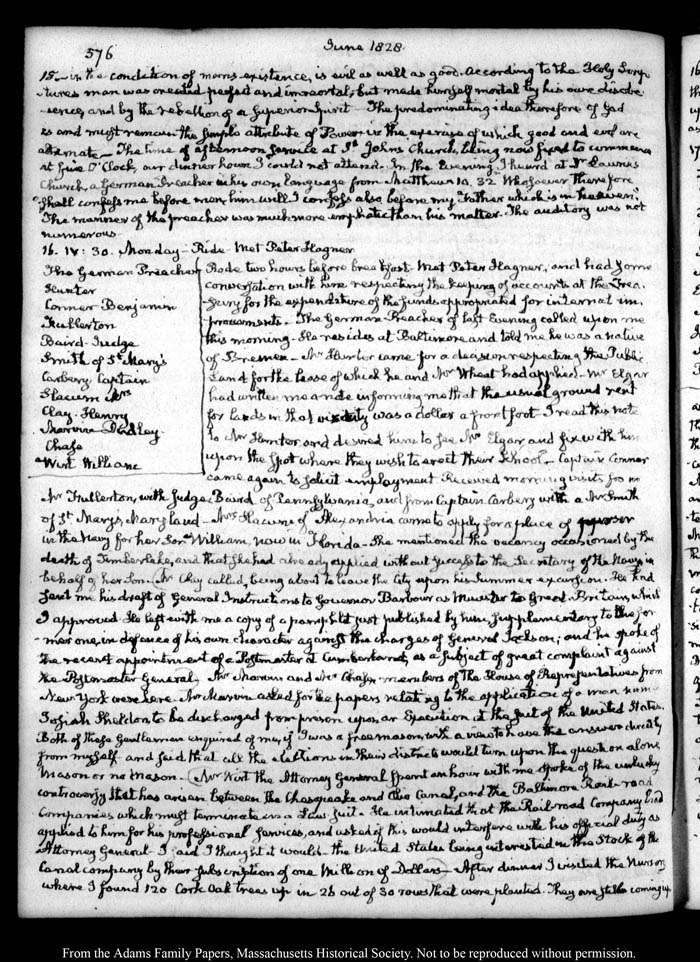 576
June 1828
15.- in the condition of man's existence, is evil as well as good. According to the Holy Scrip-
tures man was created perfect and immortal, but made himself mortal by his own disobe-
dience, and by the rebellion of a Superior Spirit - The predominating idea therefore of God
is and must remain the simple attribute of Power in the exercise of which good and evil are
alternate - The time of afternoon Service at St. Johns Church, being now fixed to commence
at five O'Clock, our dinner hour I could not attend. In the Evening I heard at Dr Laurie's
Church, a German Preacher in his own language from Matthew 10. 32 "Whosoever therefore
"shall confess me before men, him will I confess also before my Father which is in heaven."
The manner of the preacher was much more emphatic than his matter. The auditory was not
numerous
16. IV: 30. Monday - Ride. Met Peter Hagner
The German Preacher
Hunter
Connor Benjamin
Fullerton
Baird - Judge
Smith of St. Mary's
Carbery. Captain
Slacum Mrs
Clay. Henry
Marvin Dudley.
Chase
Wirt William
Rode two hours before breakfast. Met Peter Hagner, and had some
conversation with him respecting the keeping of accounts at the Trea-
sury for the expenditure of the funds appropriated for internal im-
provements. The German Preacher of last Evening called upon me
this morning. He resides at Baltimore and told me he was a native
of Bremen - Mr Hunter came for a decision respecting the Public
Land for the lease of which he and Mr Wheat had applied - Mr Elgar
had written me a note informing me that the usual ground rent
for lands in that vicinity was a dollar a front foot. I read this note
to Mr Hunter and desired him to see Mr Elgar, and fix with him
upon the spot where they wish to erect their School - Captain Connor
came again to solicit employment. Received morning visits from
Mr Fullerton, with Judge Baird of Pennsylvania, and from Captain Carbery with a Mr Smith
of St. Mary's, Maryland - Mrs Slacum of Alexandria came to apply for a place of purser
in the Navy for her Son William, now in Florida. She mentioned the vacancy occasioned by the
death of Timberlake, and that she had already applied without success to the Secretary of the Navy in
behalf of her Son. Mr Clay called, being about to leave the City upon his Summer excursion. He had
sent me his draft of General Instructions to Governor Barbour as Minister to Great-Britain, which
I approved. He left with me a copy of a pamphlet just published by him, supplementary to the for-
mer one, in defence of his own character against the charges of General Jackson; and he spoke of
the recent appointment of a Postmaster at Cumberland, as a subject of great complaint against
the Postmaster General. Mr Marvin and Mr Chase members of the House of Representatives from
New York were here. Mr Marvin asked for the papers relating to the application of a man named
Josiah Sheldon to be discharged from prison upon an Execution at the suit of the United States.
Both of these Gentlemen enquired of me, if I was a freemason, with a view to have the answer directly
from myself and said that all the elections in their districts would turn upon the question alone
Mason or no Mason. - Mr Wirt the Attorney General spent an hour with me spoke of the unlucky
controversy that has arisen between the Chesapeake and Ohio Canal, and the Baltimore Rail-road
Companies which must terminate in a Law suit. He intimated that the Rail-road Company had
applied to him for his professional services, and asked if this would interfere with his official duty as
Attorney General. I said I thought it would - the United States being interested in the Stock of the
Canal company by their subscription of one Million of Dollars - After dinner I visited the Nursery
where I found 120 Cork Oak trees up in 26 out of 30 rows that were planted. They are still coming up.
From the Adams Family Papers, Massachusetts Historical Society. Not to be reproduced without permission.